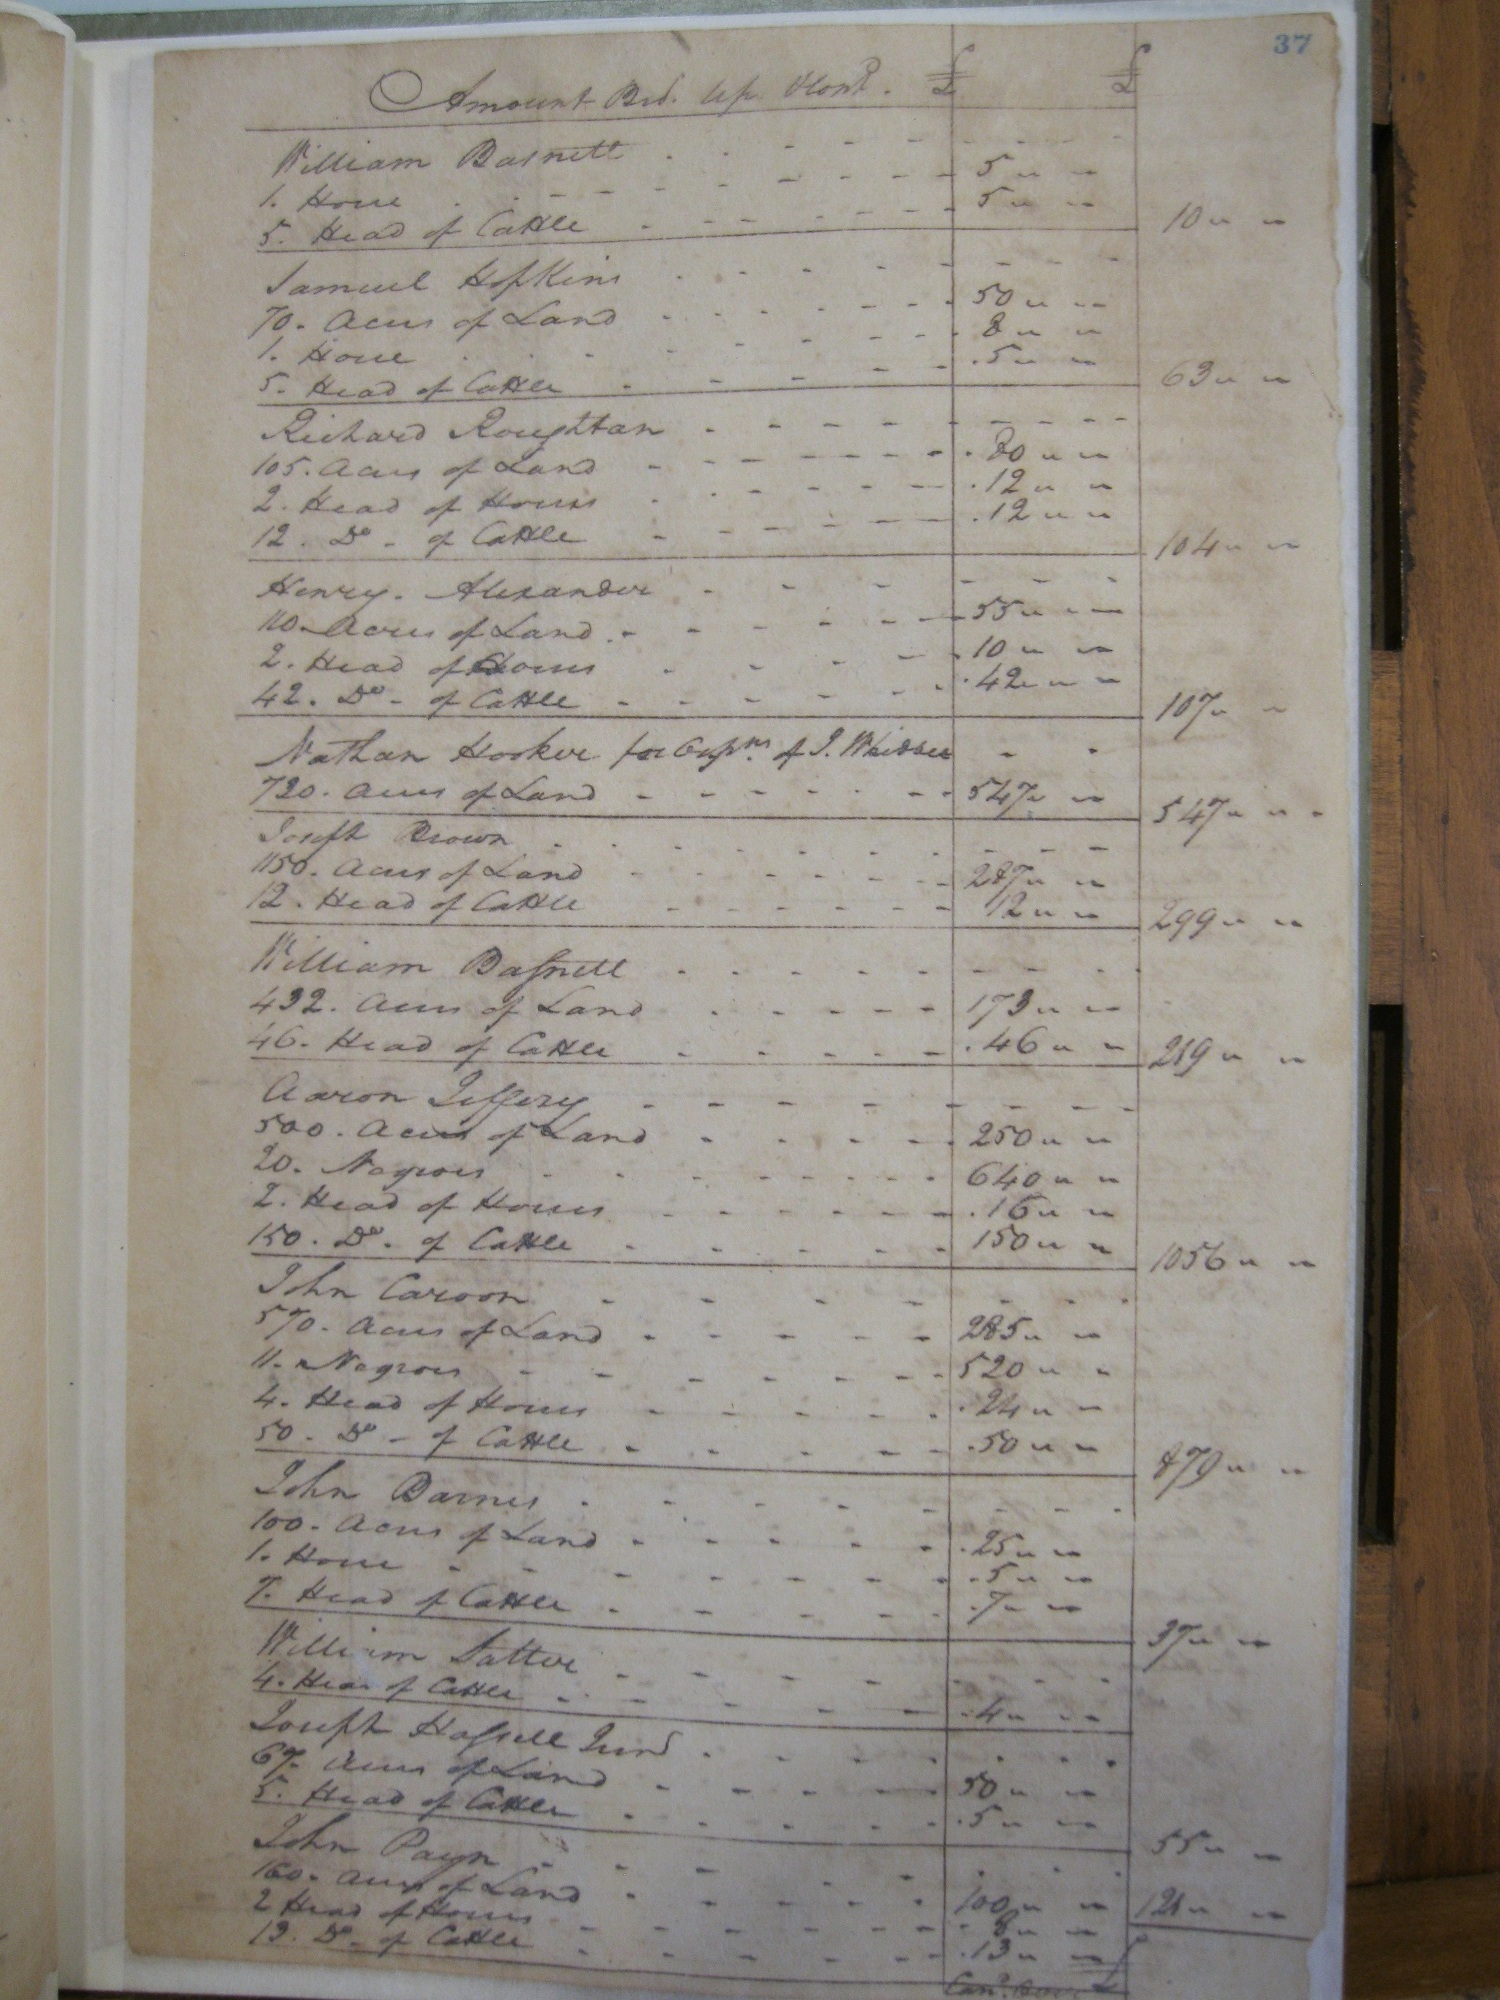 37
Amount Brd. up £ £
William Basnett - - - -
1. Horse - - - 5 " "
5. Head of Cattle - - - 5 " " 10 " "
Samuel Hopkins - - - -
70. Acres of Land - - - 50 " "
1. Horse - - - 8 " "
5. Head of Cattle - - - 5 " " 63 " "
Richard Roughton - - - -
105. Acres of Land - - - 80 " "
2. Head of Horses - - - 12 " "
12. Do - of Cattle - - - 12 " " 104 " "
Henry. Alexander - - - -
110. Acres of Land - - - 55 " "
2. Head of Horses - - - 10 " "
42. Do - of Cattle - - - 42 " " 107 " "
Nathan Hooker for of J. Whidbee - -
720. Acres of Land - - - 547 " " 547 " "
Joseph Brown - - - -
1150. Acres of Land - - - 287 " "
12. Head of Cattle - - - 12 " " 299 " "
William Basnett - - - -
432. Acres of Land - - - 173 " "
46. Head of Cattle - - - 46 " " 219 " "
Aaron Jeffery - - - -
500. Acres of Land - - - 250 " "
20. Negroes - - - 640 " "
2. Head of Horses - - - 16 " "
150. Do. of Cattle - - - 150 " " 1056 " "
John Caroon - - - -
570. Acres of Land - - - 285 " "
11. Negroes - - - 520 " "
4. Head of Horses - - - 24 " "
50. Do - of Cattle - - - 50 " " 879 " "
John Barnes - - - -
100. Acres of Land - - - 25 " "
1. Horse - - - 5 " "
7. Head of Cattle - - - 7 " " 37 " "
William - - - -
4. Head of Cattle - - - 4 " "
Joseph Hassell Junr - - - -
67. Acres of Land - - - 50 " "
5. Head of Cattle - - - 5 " " 55 " "
John Payn - - - -
160. Acres of Land - - - 100 " " 121 " "
2 Head of Horses - - - 8 " "
13. Do - of Cattle - - - 13 " " £
Card. Over